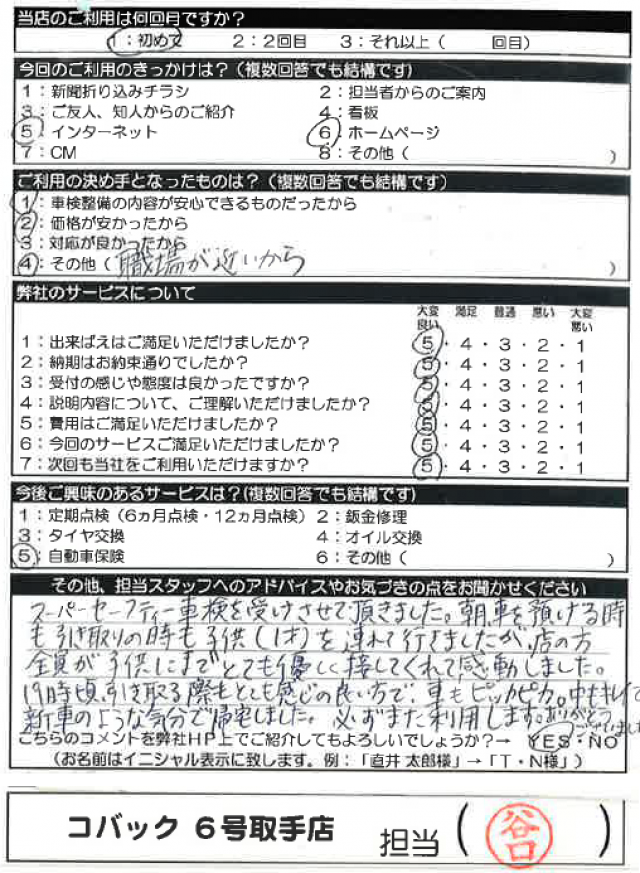 当店のご利用は何回目ですか？
1：初めて 2：2回目 3：それ以上（ 回目）
今回のご利用のきっかけは？（複数回答でも結構です）
1：新聞折り込みチラシ 2：担当者からのご案内
3：ご友人、知人からのご紹介 4：看板
5：インターネット 6：ホームページ
7：CM 8：その他（ ）
ご利用の決め手となったものは？（複数回答でも結構です）
1：車検整備の内容が安心できるものだったから
2：価格が安かったから
3：対応が良かったから
4：その他（ 職場が近いから ）
弊社のサービスについて
大変良い 満足 普通 悪い 大変悪い
1：出来ばえはご満足いただけましたか？ 5・4・3・2・1
2：納期はお約束通りでしたか？ 5・4・3・2・1
3：受付の感じや態度は良かったですか？ 5・4・3・2・1
4：説明内容について、ご理解いただけましたか？ 5・4・3・2・1
5：費用はご満足いただけましたか？ 5・4・3・2・1
6：今回のサービスご満足いただけましたか？ 5・4・3・2・1
7：次回も当社をご利用いただけますか？ 5・4・3・2・1
今後ご興味のあるサービスは？（複数回答でも結構です）
1：定期点検（6ヵ月点検・12ヵ月点検） 2：鈑金修理
3：タイヤ交換 4：オイル交換
5：自動車保険 6：その他（ ）
その他、担当スタッフへのアドバイスやお気づきの点をお聞かせください
スーパーセーフティー車検を受けさせて頂きました。朝、車を預ける時
も引き取りの時も子供（1才）を連れて行きましたが、店の方
全員が子供にまでとても優しく接してくれて感動しました。
19時頃、引き取る際もとても感じの良い方で、車もピッカピカ。中もキレイで
新車のような気分で帰宅しました。必ずまた利用します。ありがとう
ございました
こちらのコメントを弊社HP上でご紹介してもよろしいでしょうか？→ YES・NO
（お名前はイニシャル表示に致します。例：「直井 太郎様」→「T・N様」）
コバック 6号取手店 担当（ 谷口 ）